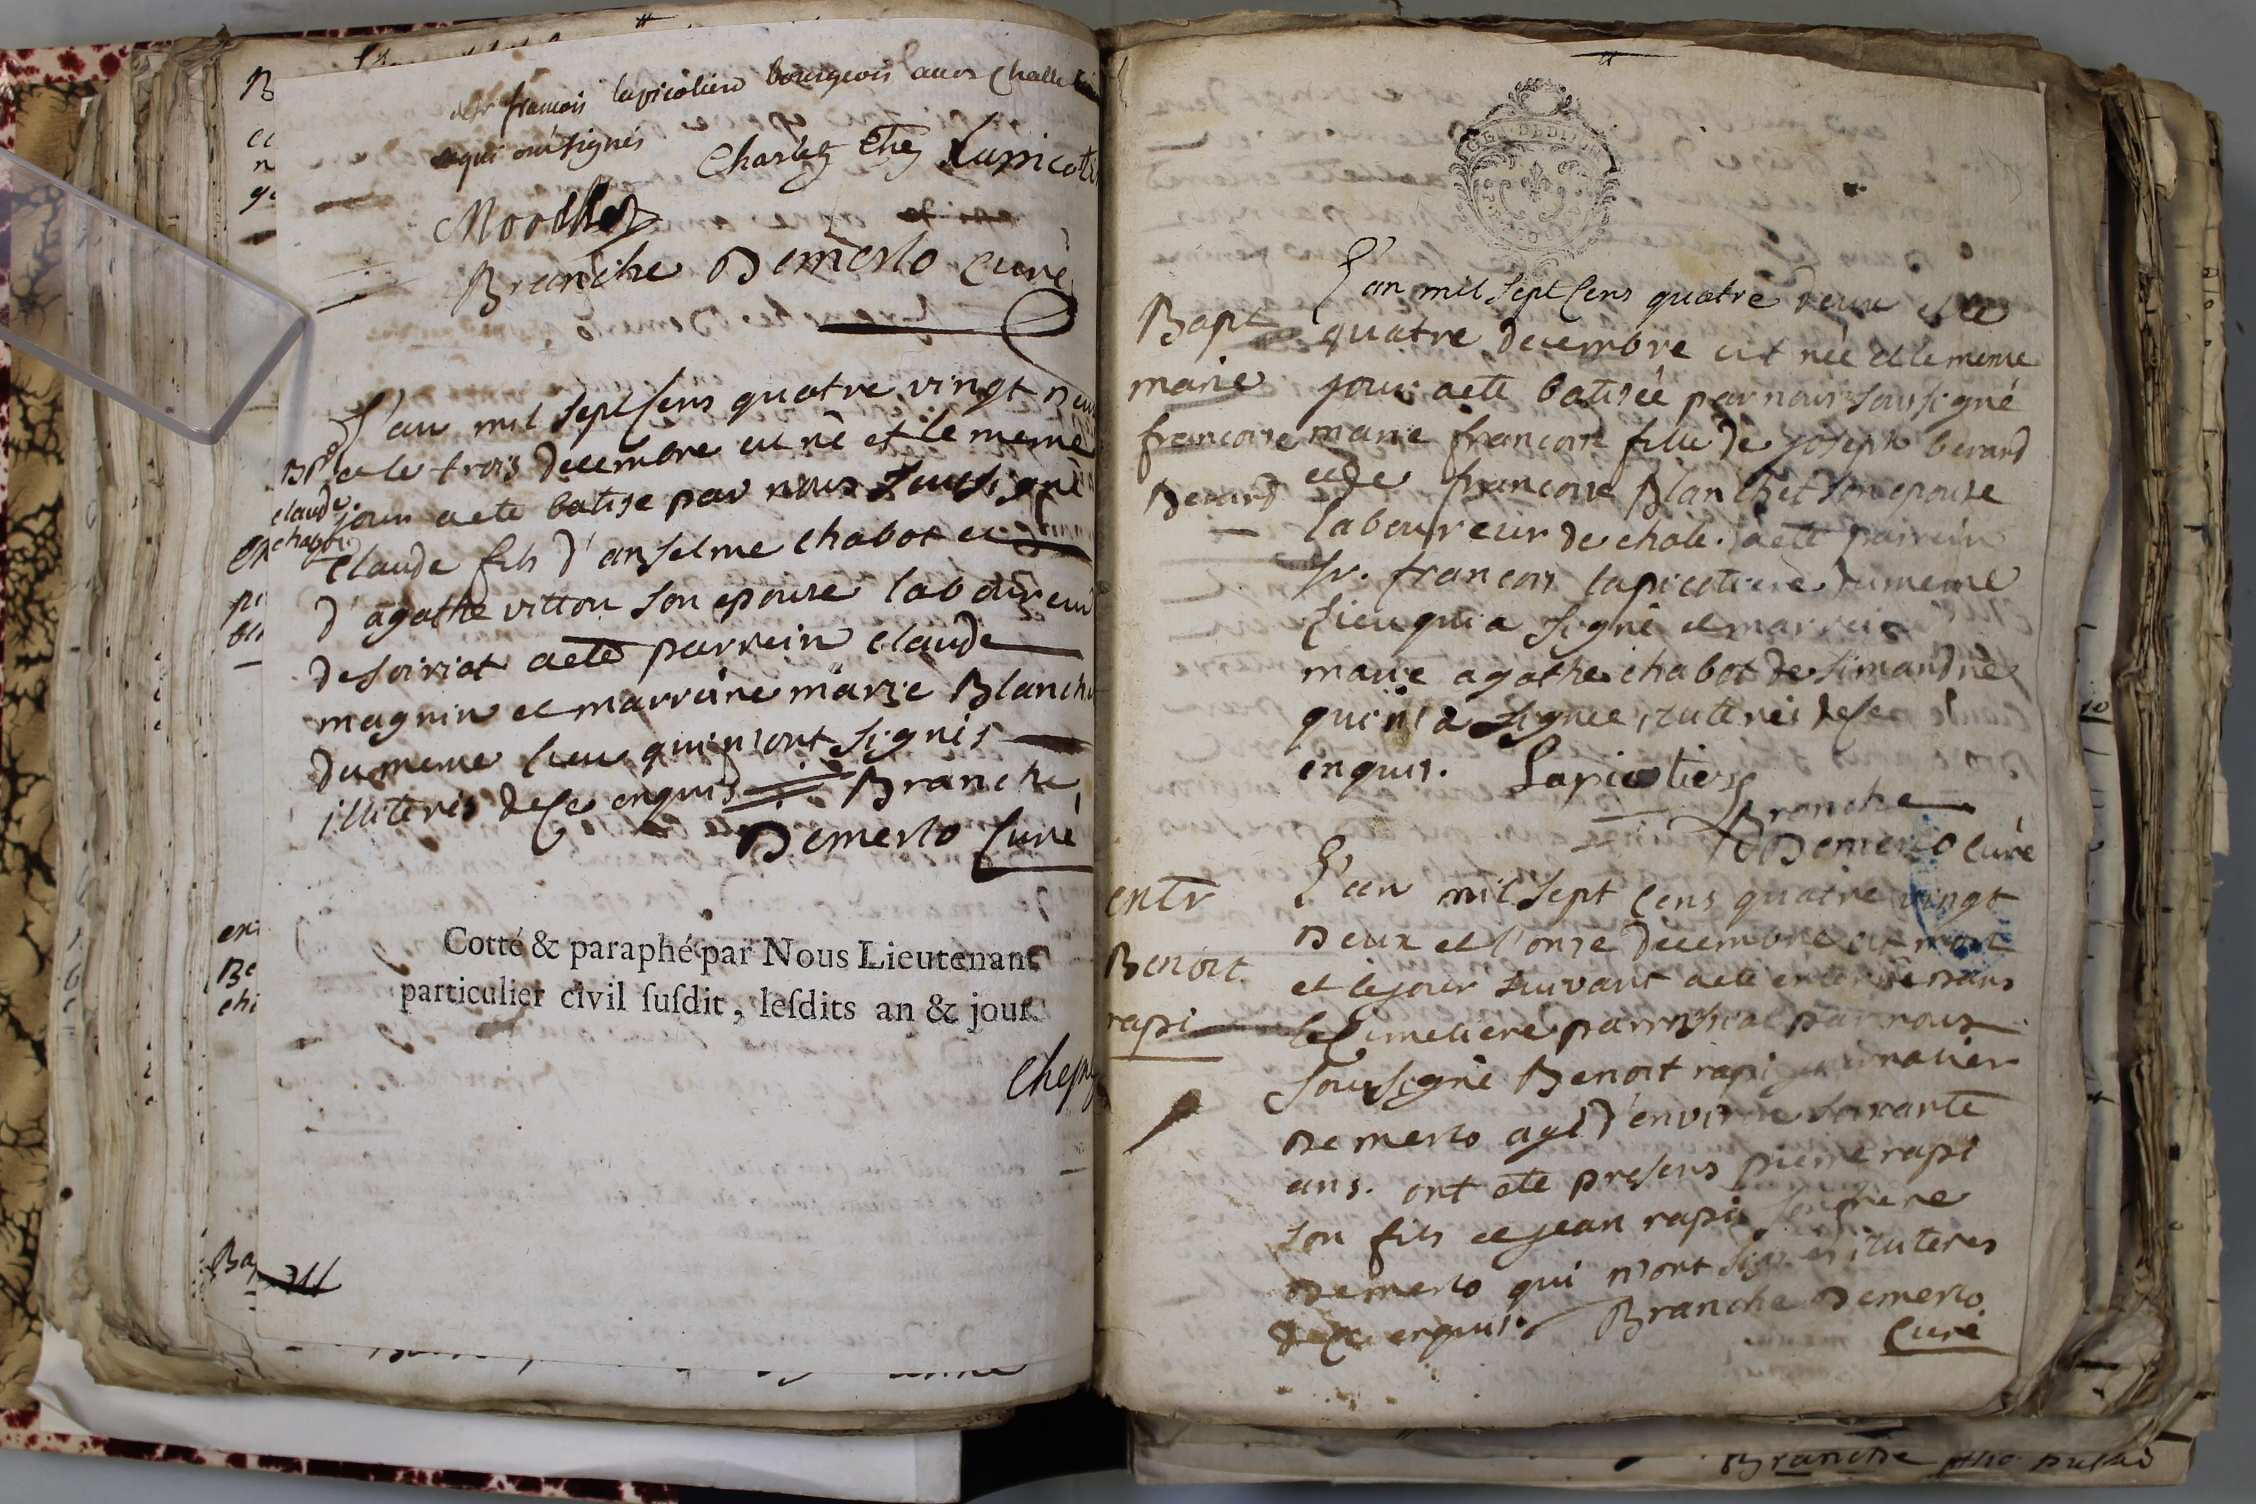 françois lapicotiere bourgeois
qui ont signés
Lapicoti
Branche Demerlo Curé
L'an mil sept cens quatre vingt deux
Bpt
et le trois decembre est né et le meme
claude
chabot
jour aeté batise par nous soussigné
claude fils d'anselme chabot et
d'agathe vitton son epouse laboureur
de soiriat aeté parrein claude
magnin et marreine marie Blanche
du meme lieu qui n'ont signés
illiterés de ce enquis Branche
Demerlo Curé
Cotté & paraphé par Nous Lieutenant
particulier civil ſuſdit, leſdits an & jour.
L'an mil sept cens quatre deux et le
Bapt
quatre decembre est née et le meme
marie
jour aeté batisée par nous soussigné
francoise
marie francoise fille de joseph berard
Berard
et de francoise Blanchet son epouse
laboureur de chale. aeté parrein
sr. francois lapicotiere du meme
lieu qui a signé et marreine
marie agathe chabot de simandre
qui n'a signée, illiterée de ce
enquis. Lapicotiere
Branche
Demerlo Curé
entr
L'an mil sept cens quatre vingt
deux et l'onze decembre est mort
Benoit
et le jour suivant aeté enterré dans
rapi
le cimetiere parroissial par nous
soussigné Benoit rapi journalier
de merlo agé d'environ soixante
ans. ont été presens pierre rapi
son fils et jean rapi son frere
de merlo qui n'ont signés illiterés
de ce enquis. Branche Demerlo
Curé
Branche